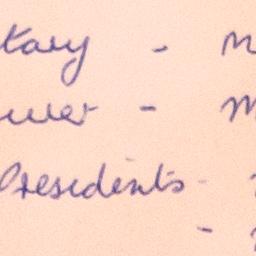 tary - M
urer - M
Presidents -
-